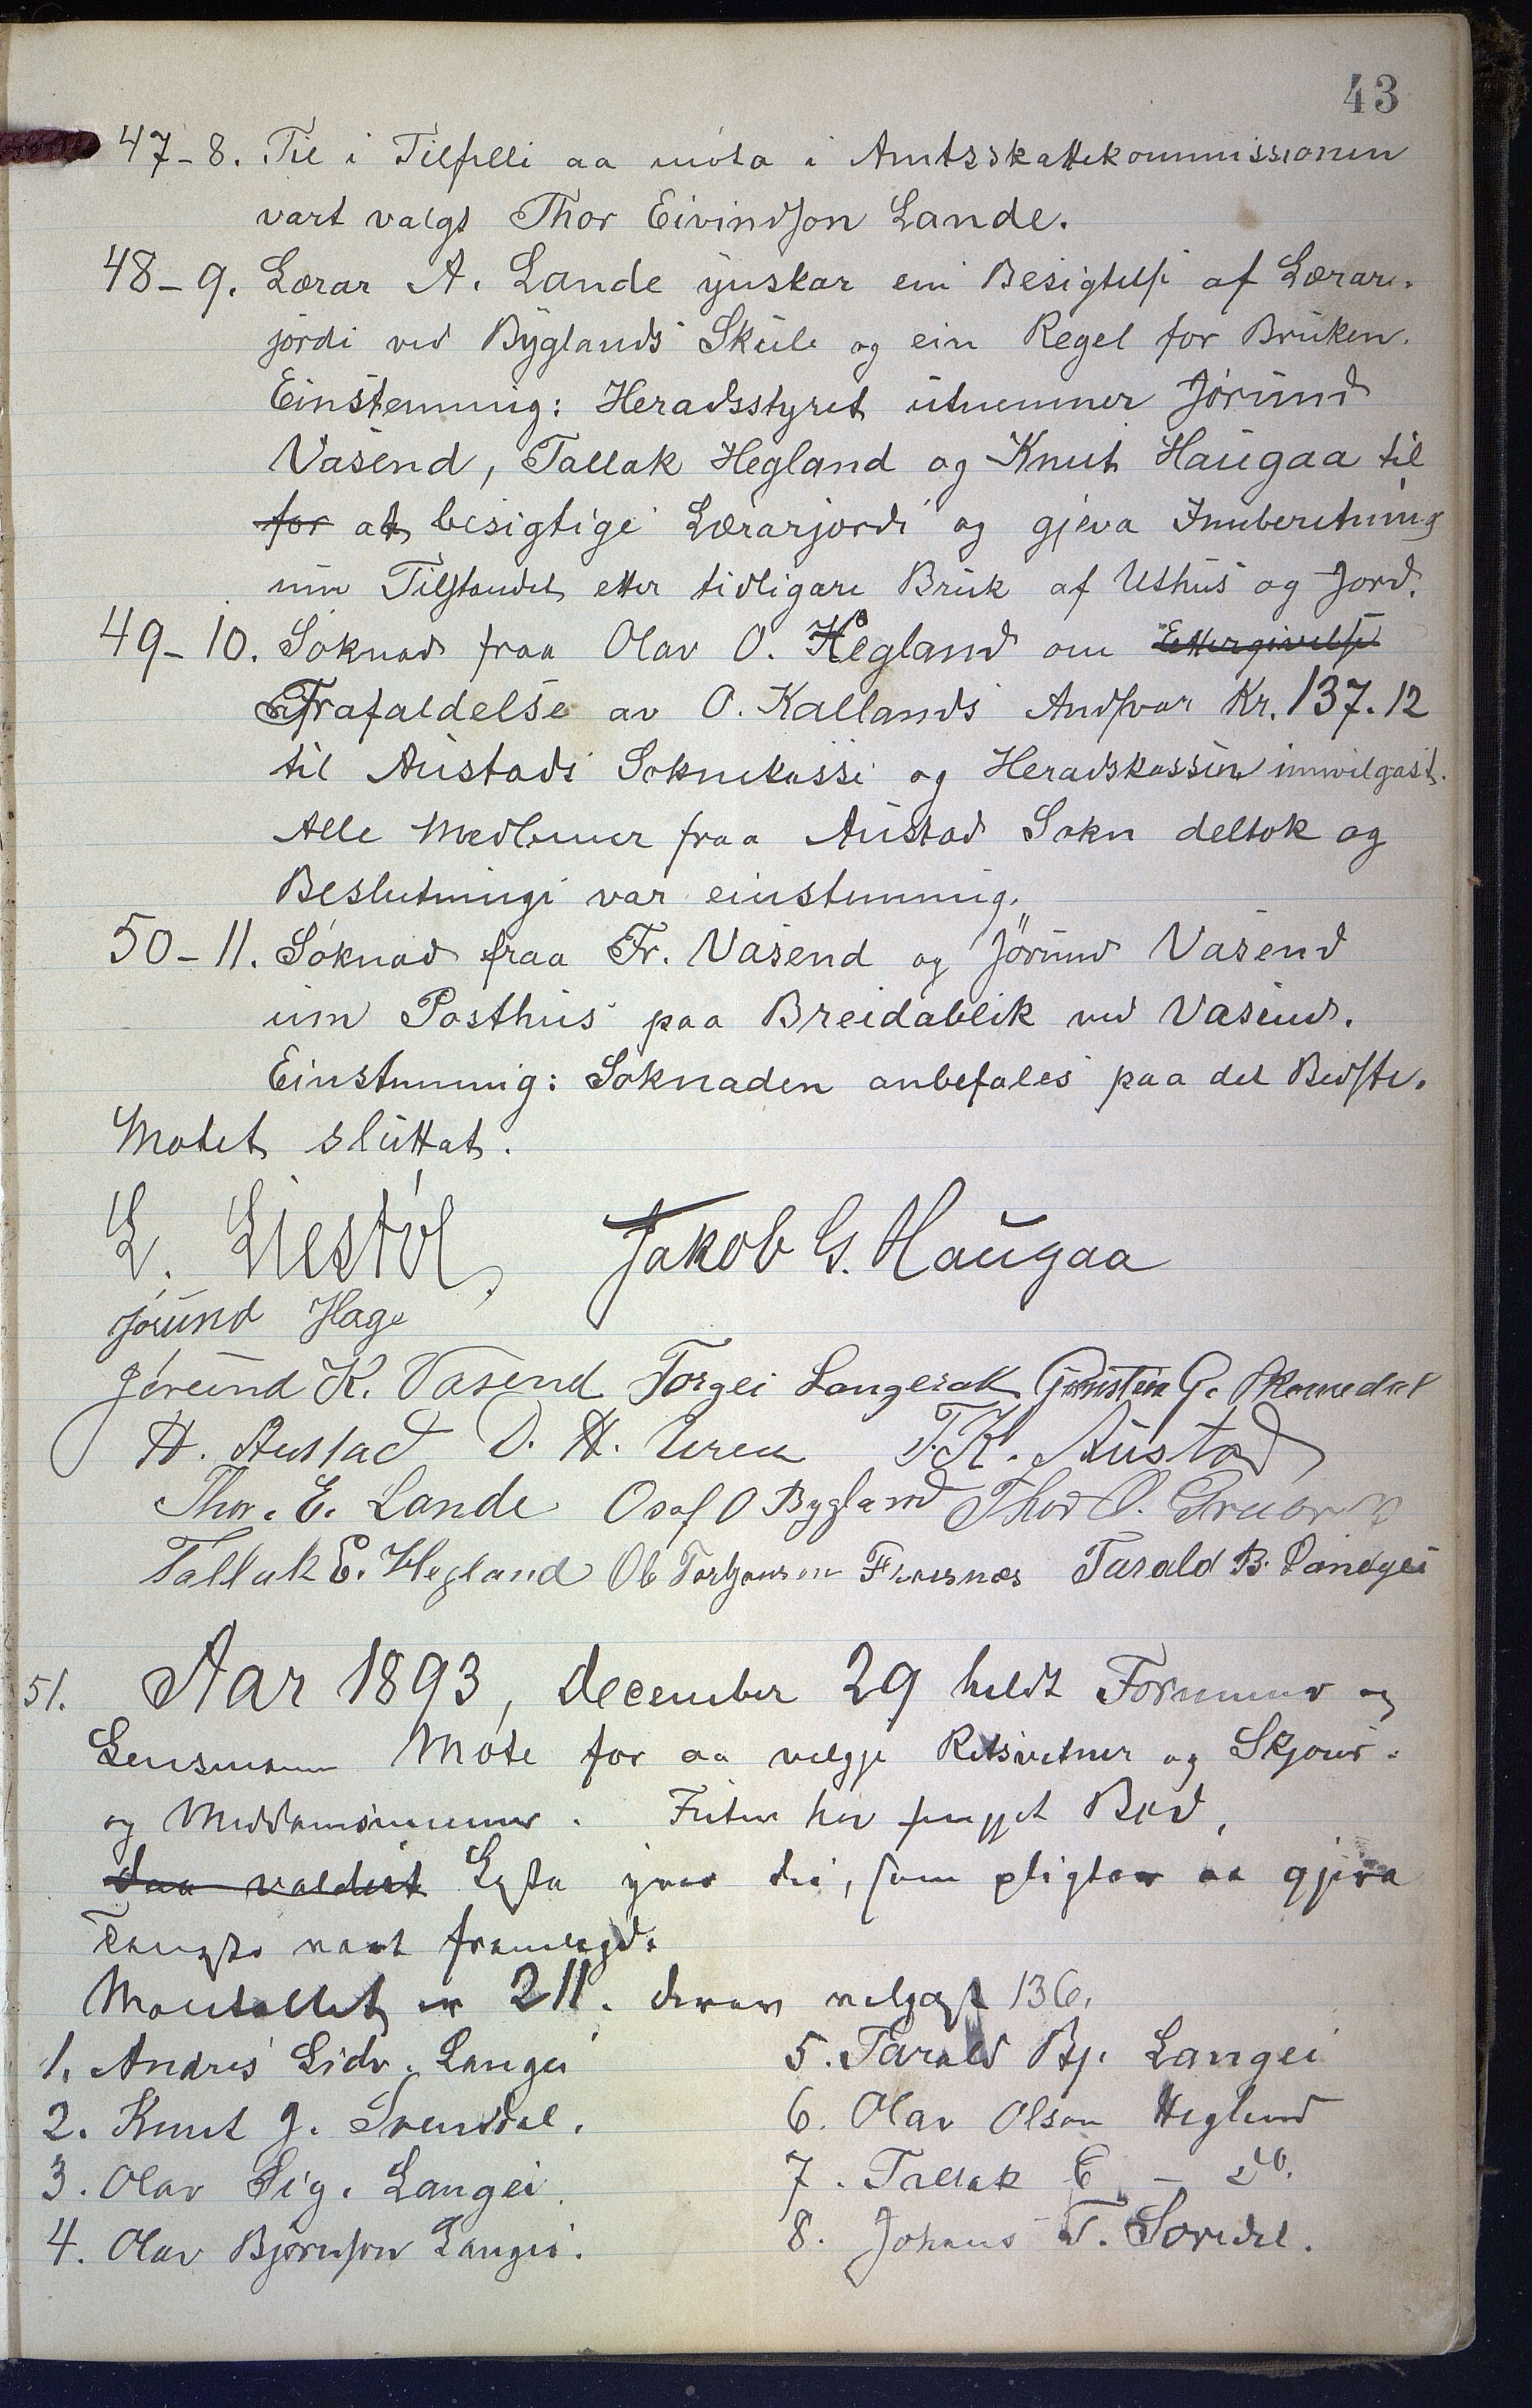 43
47-8. Til i Tilfelli aa møta i Amtsskattekommissionen
vart valgt Thor Eivindson Lande.
48-9. Lærar A. Lande ynskar ein Besigtelse af Lærar-
jordi ved Byglands Skule og ein Regel for Bruken.
Einstemmig: Heradsstyret utnemner Jørund
Vasend, Tallak Hegland og Knut Haugaa til
for at besigtige Lærarjordi og gjeva Innberetning
um Tilstandet etter tidligare Bruk af Uthus og Jord.
49-10. Søknad fraa Olav O. Hegland om Ettergivelse
Frafaldelse av O. Kallands Andsvar Kr. 137.12
til Austads Soknekasse og Heradskassen innvilgast.
Alle Medlemer fraa Austad Sokn deltok og
Beslutningi var einstemmig.
50-11. Søknad fraa Fr. Vasend og Jørund Vasend
um Posthus paa Breidablik ved Vasend.
Einstemmig: Søknaden anbefales paa det Bedste.
Møtet sluttat.
L. Liestøl, Jakob G. Haugaa
Jørund Hage
Jørund K. Vasend Torgei Langerak Gunsten G. Skomedal
H. Austad O. H. Uren T. K. Austad
Thor. E. Lande Osof O Bygland Thor O.
Tallak E. Hegland Ole Torbjørnsen Frøsnæs Tarald B. Langei
51. Aar 1893, december 29 heldt Formenner og
Lensmann Møte for aa velgje Retsvitner og Skjøns-
og Meddomsmenner. Futen har fengjet Bod,
daa valdest Lysta yver dei, som pligtar aa gjera
Tenesta vart framlagd.
Manntallet er 211. derav valgast 136.
1. Andres Eidv. Langei
2. Knut J. Svensdal.
3. Olav Sig. Langei
4. Olav Bjørnson Langei.
5. Tarald Bj. Langei
6. Olav Olson Hegland
7. Tallak E - do.
8. Johans T. Sordal.